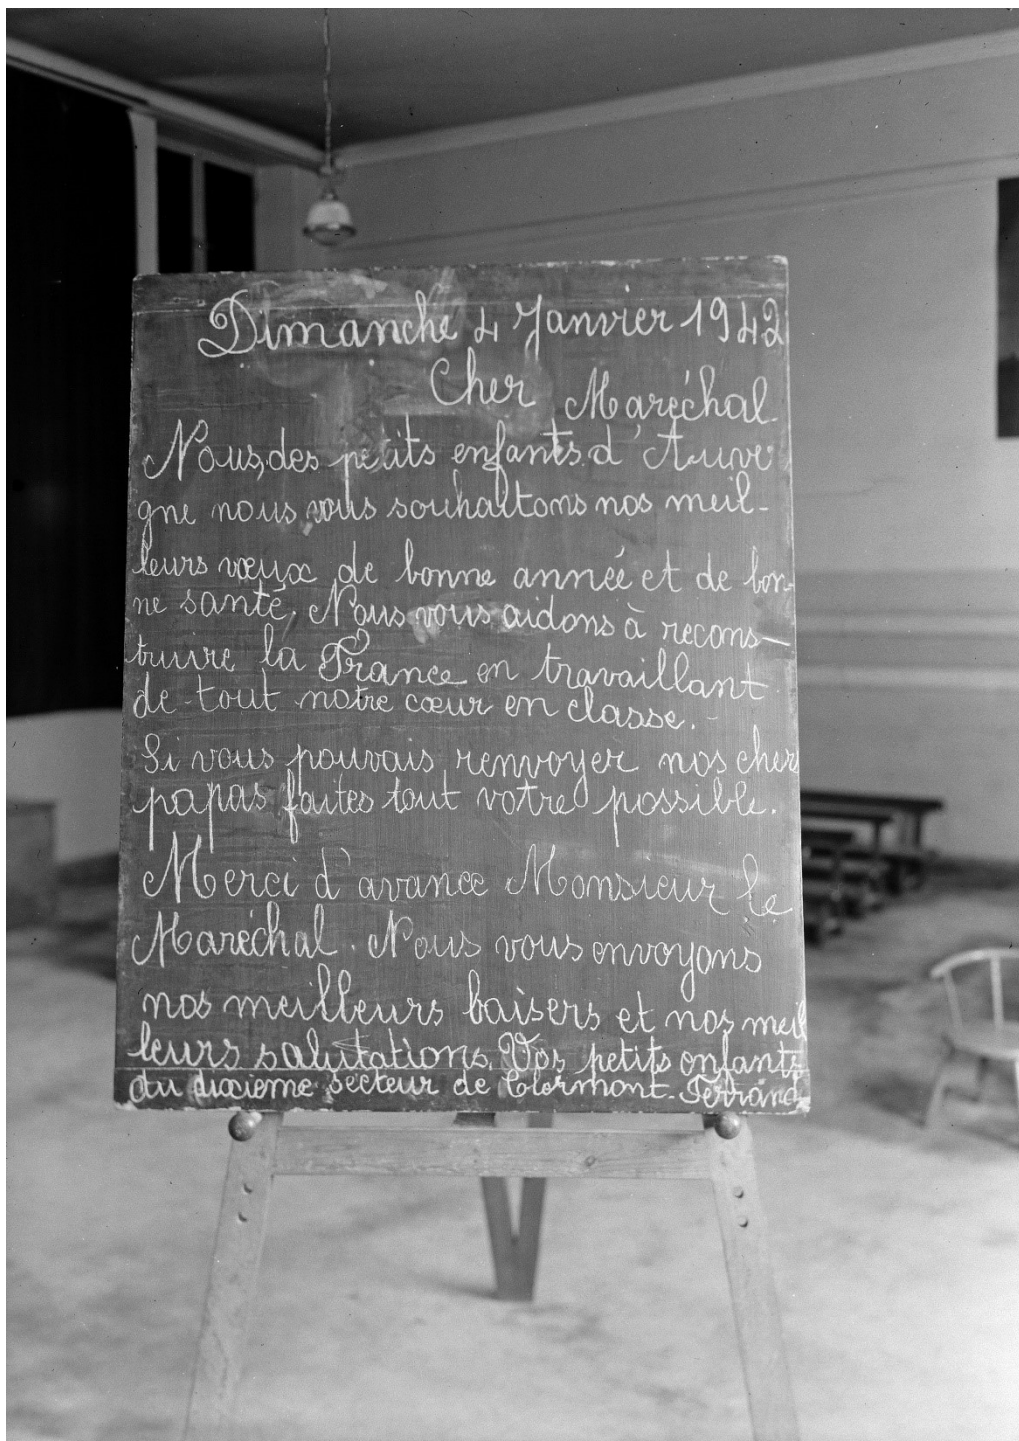 Dimanche 4 Janvier 1942
Cher Maréchal
Nous, des petits enfants d'Auver
gne nous vous souhaitons nos meil-
leurs vœux de bonne année et de bon-
ne santé, Nous vous aidons à recons-
truire la France en travaillant
de tout notre cœur en classe.-
Si vous pouvais renvoyer nos cher
papas faites tout votre possible.
Merci d'avance Monsieur le
Maréchal. Nous vous envoyons
nos meilleurs baisers et nos meil
leurs salutations. Vos petits enfants
du dixième secteur de Clermont-Ferrand